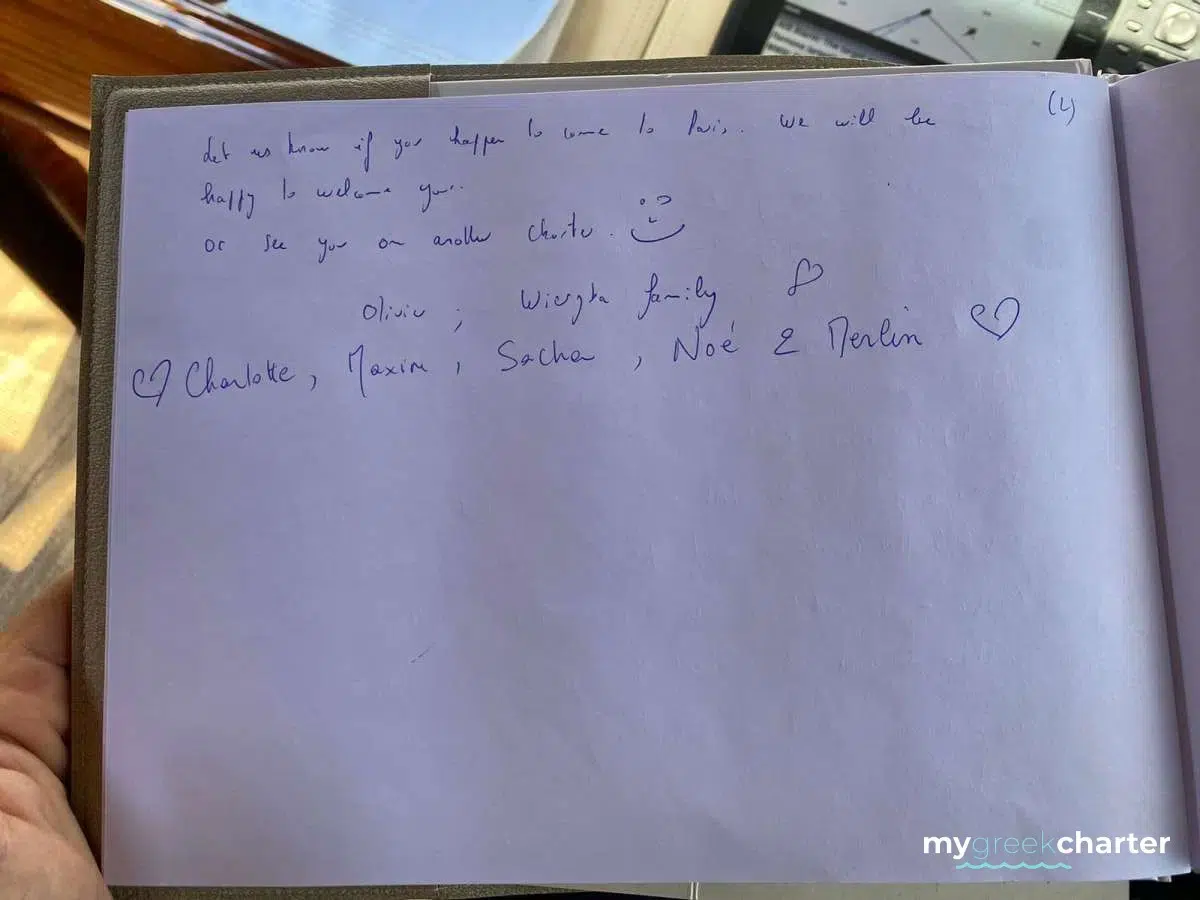 (4)
Let us know if you happen to come to Paris. We will be
happy to welcome you.
or see you on another charter.
Olivier ; family
Charlotte, Maxim, Sacha, Noé & Merlin
mygreekcharter